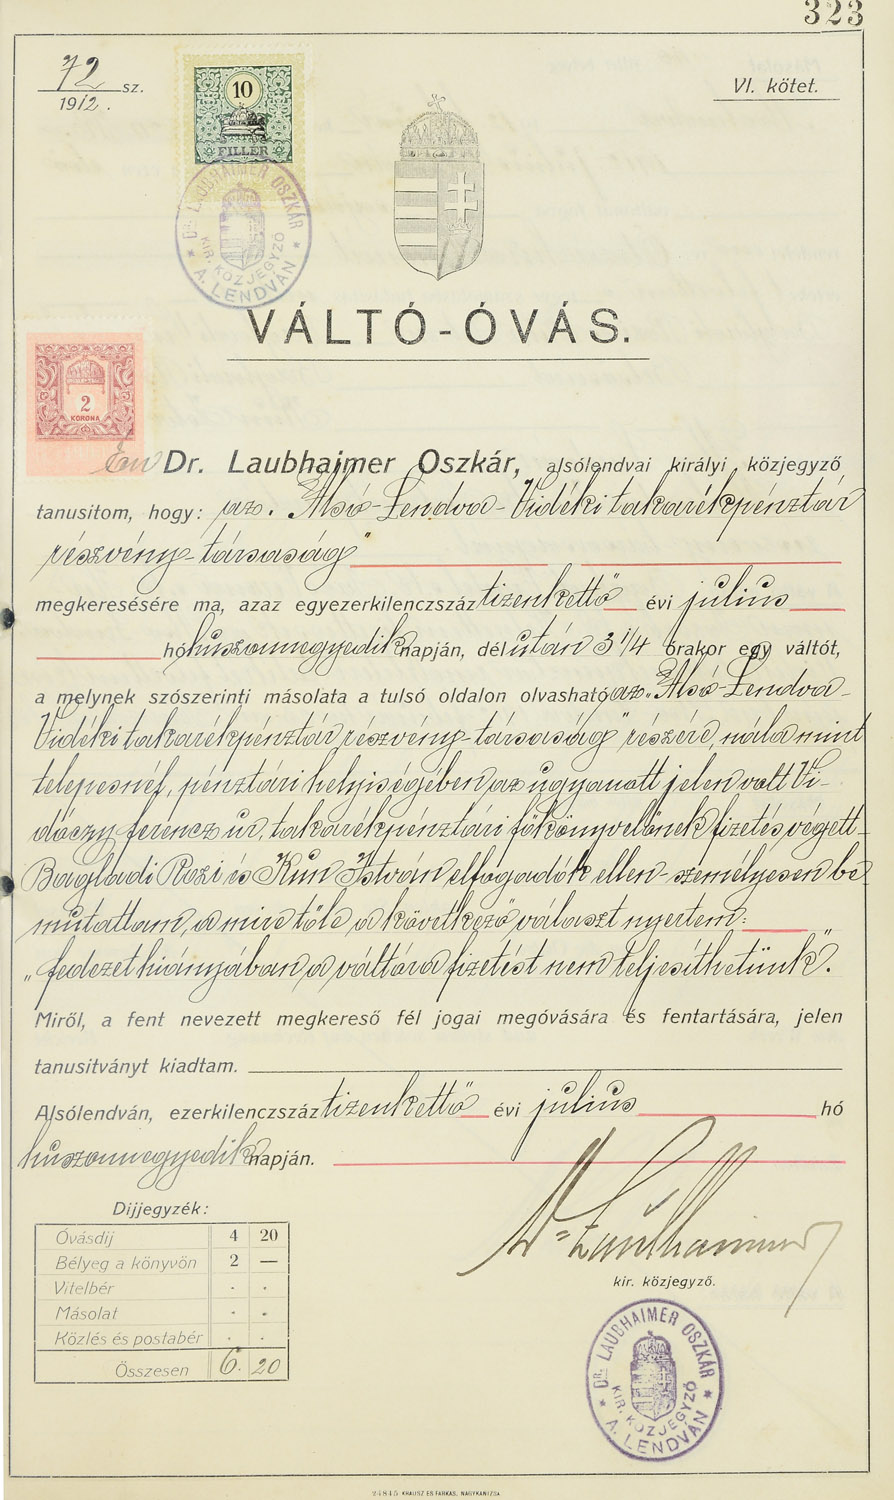 323
72 sz.
1912.
VI. kötet.
10
FILLÉR
Dr. LAUBHAIMER OSZKÁR
KIR. KÖZJEGYZŐ
* A. LENDVÁN *
VÁLTÓ-ÓVÁS.
2
KORONA
Én Dr. Laubhaimer Oszkár, alsólendvai királyi közjegyző
tanusitom, hogy: az „Alsó-Lendva-Vidéki takarékpénztár
részvény-társaság"
megkeresésére ma, azaz egyezerkilenczszáz tizenkettő évi julius
hó huszonnegyedik napján, dél után 3 1/4 órakor egy váltót,
a melynek szószerinti másolata a tulsó oldalon olvasható az „Alsó-Lendva-
Vidéki takarékpénztár részvény-társaság" részére, nála mint
telepesnél, pénztári helyiségében az ugyanott jelen volt Vi-
dóczy Ferencz ur, takarékpénztári főkönyvelőnek fizetés végett-
Bagladi Rozi és Kun István elfogadók ellen-személyesen be-
mutattam, a mire tőle a következő választ nyertem:
„fedezet hiányában a váltóra fizetést nem teljesíthetünk".
Miről, a fent nevezett megkereső fél jogai megóvására és fentartására, jelen
tanusitványt kiadtam.
Alsólendván, ezerkilenczszáz tizenkettő évi julius hó
huszonnegyedik napján.
Dr Laubhaimer
kir. közjegyző.
Dijjegyzék:
Óvásdij 4 20
Bélyeg a könyvön 2 —
Vitelbér . .
Másolat . .
Közlés és postabér . .
Összesen 6. 20
Dr. LAUBHAIMER OSZKÁR
KIR. KÖZJEGYZŐ
* A. LENDVÁN *
24845 KRAUSZ ÉS FARKAS, NAGYKANIZSA